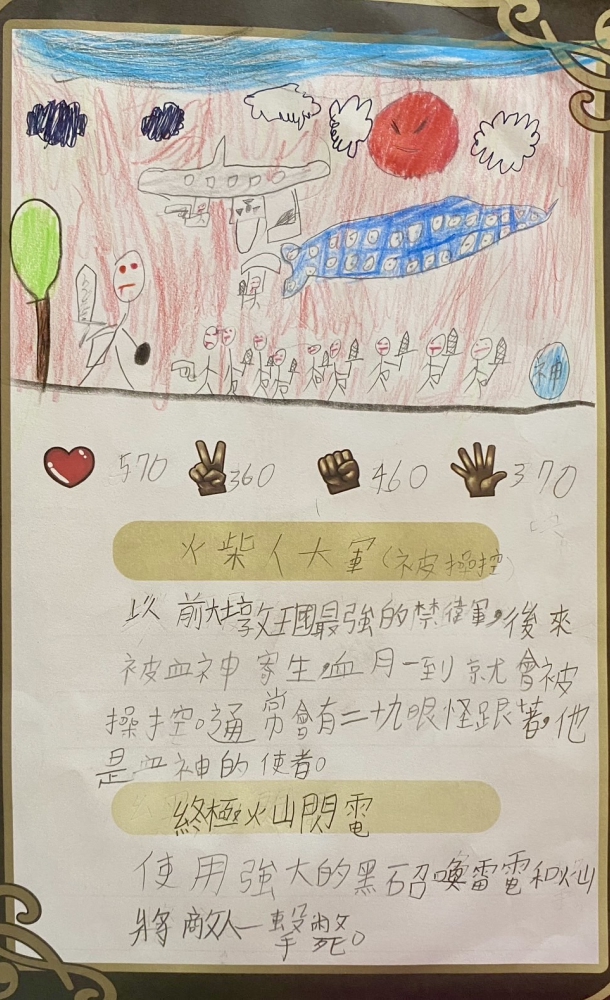 神
570 360 460 370
火柴人大軍(被操控)
以前大王國最強的禁衛軍,後來
被血神寄生,血月一到就會被
操控。通常會有二十九眼怪跟著,他
是血神的使者。
終極火山閃電
使用強大的黑石召喚雷電和火山
將敵人一擊斃。